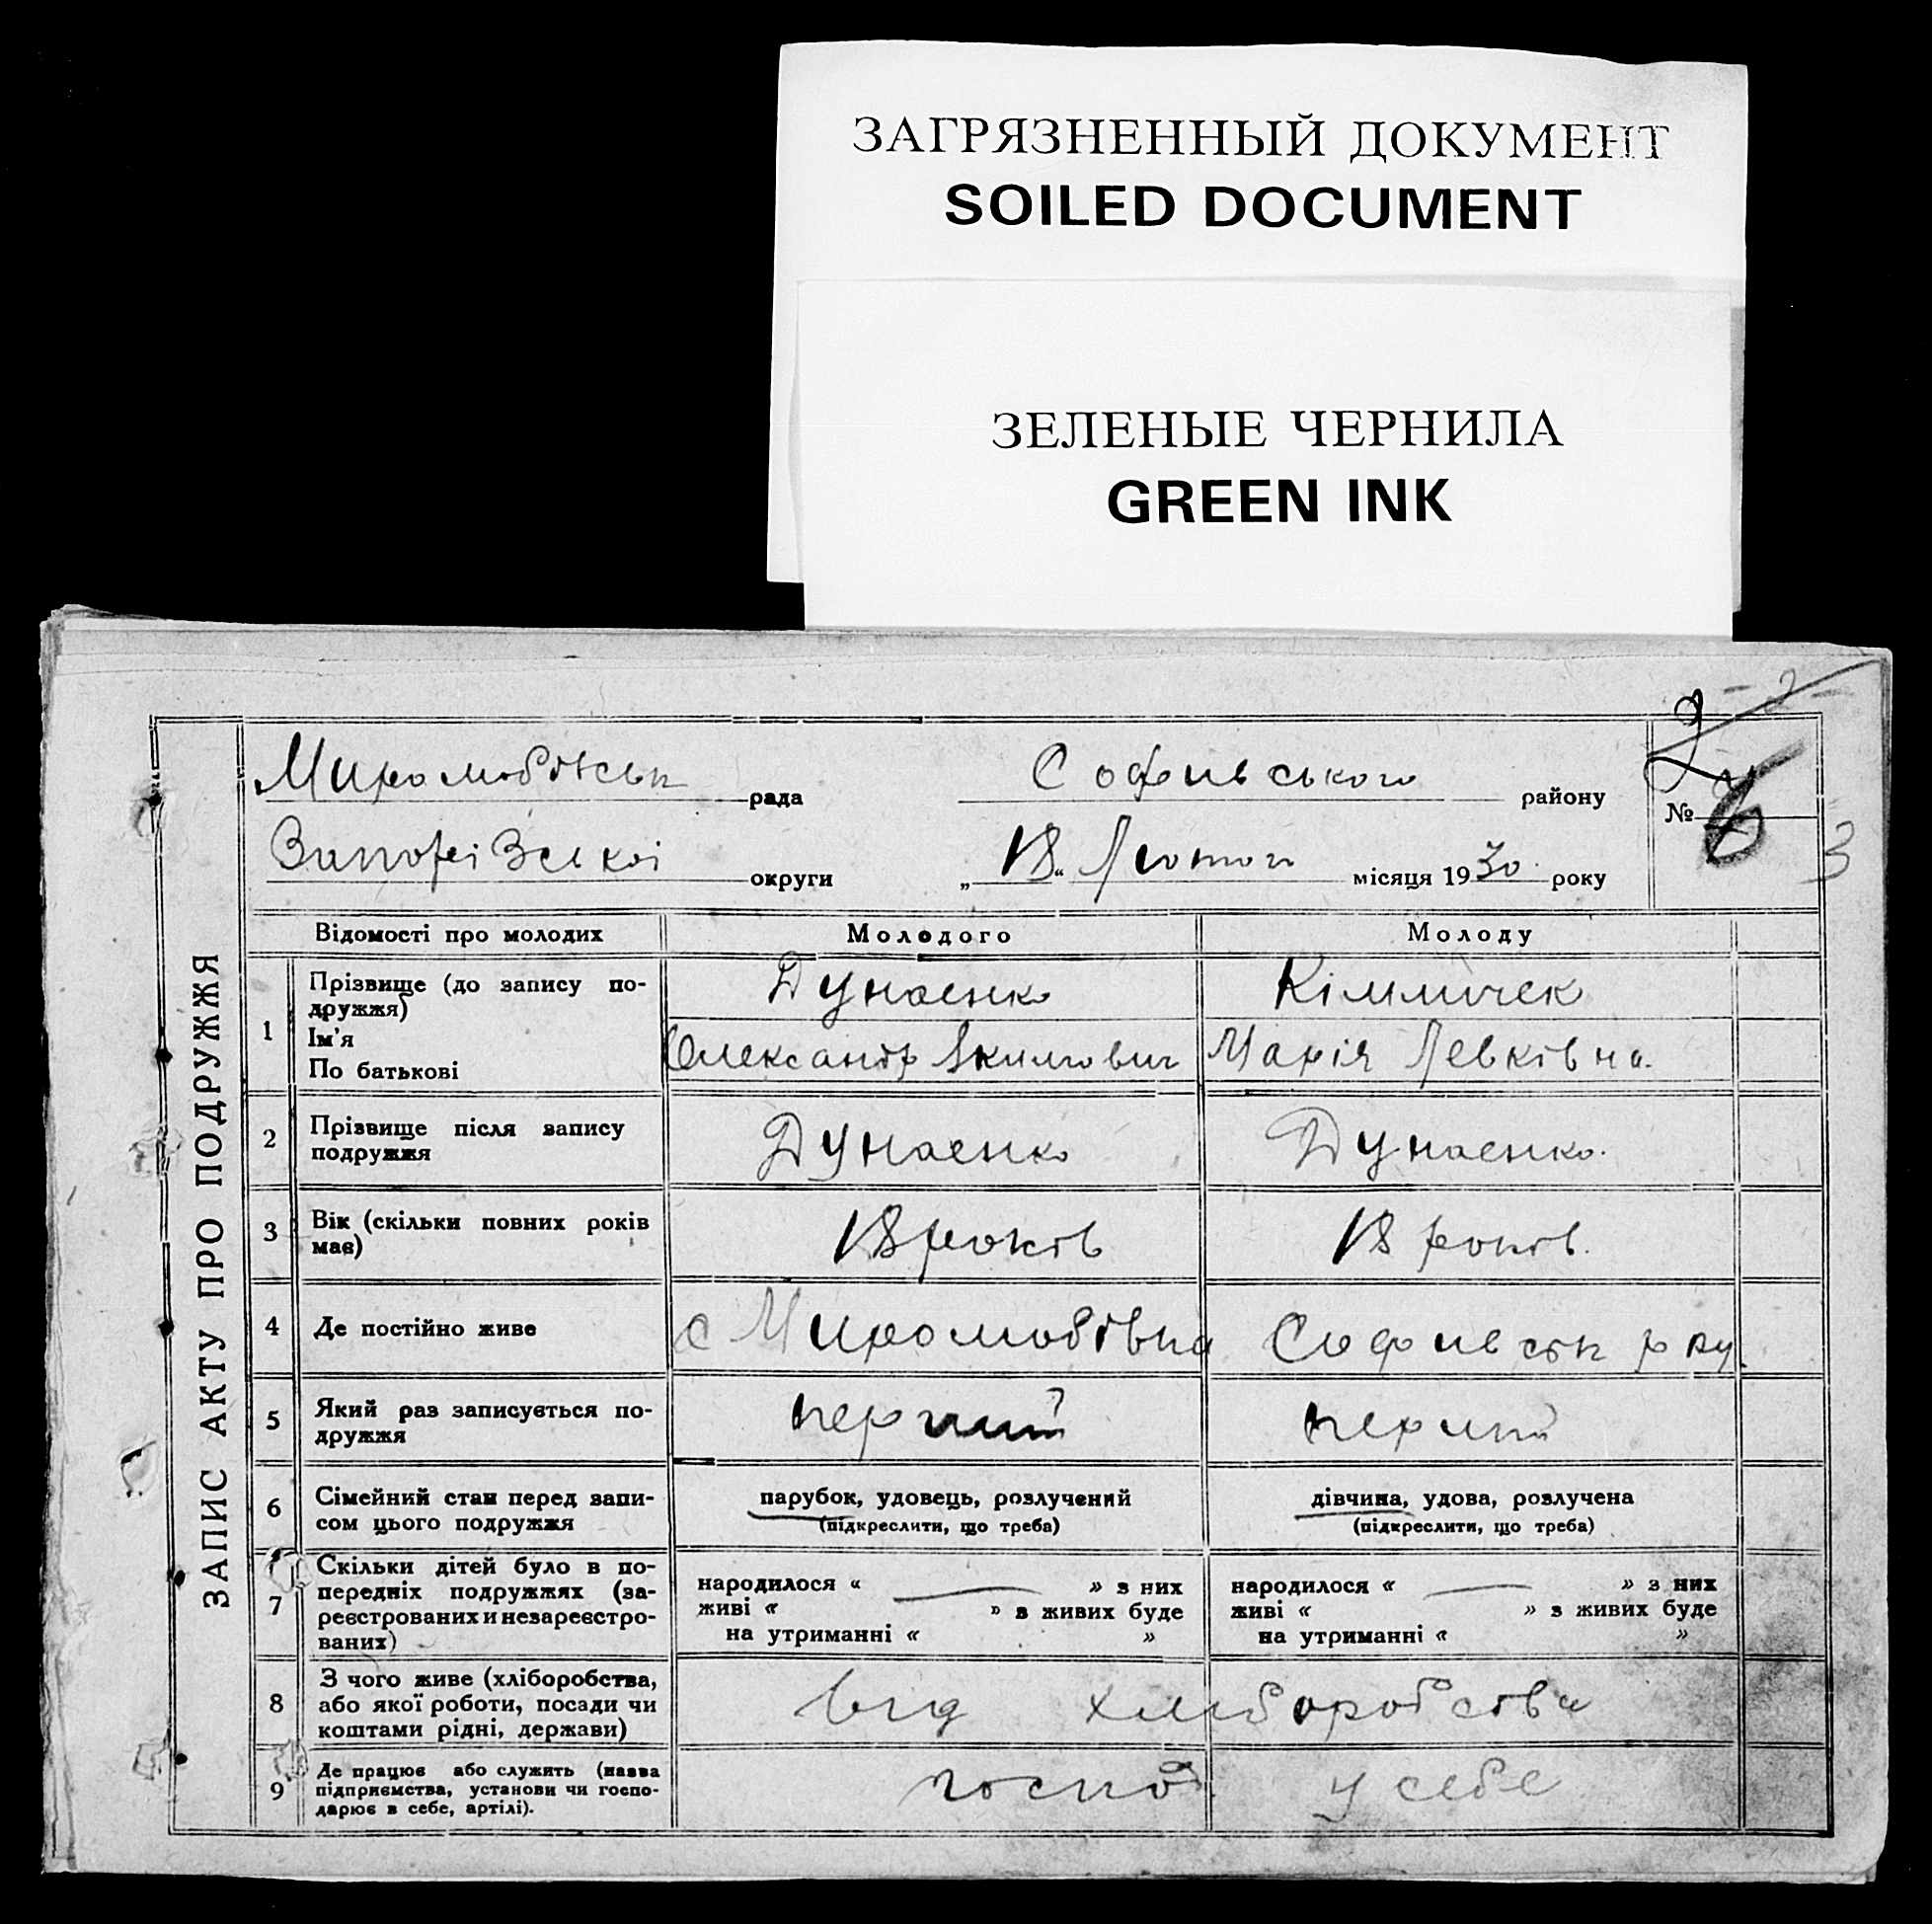 ЗАГРЯЗНЕННЫЙ ДОКУМЕНТ
SOILED DOCUMENT
ЗЕЛЕНЫЕ ЧЕРНИЛА
GREEN INK
ЗАПИС АКТУ ПРО ПОДРУЖЖЯ
Миролюбівськ рада Софиівського району
округи „18“ Лютого місяця 1930 року
№ 6
3
Відомості про молодих Молодого Молоду
1 Прізвище (до запису по-
дружжя)
Ім'я
По батькові
Дунаенко
Олександр Якимович
Марія Левківна.
2 Прізвище після запису
подружжя
Дунаенко Дунаенко.
3 Вік (скільки повних років
має)
18 років 18 років.
4 Де постійно живе с Миролюбівка
5 Який раз записується по-
дружжя
перший перший
6 Сімейний стан перед запи-
сом цього подружжя
парубок, удовець, розлучений
(підкреслити, що треба)
дівчина, удова, розлучена
(підкреслити, що треба)
7 Скільки дітей було в по-
передніх подружжях (за-
реєстрованих и незареєстро-
ваних)
народилося « » з них
живі « » в живих буде
на утриманні « »
народилося « » з них
живі « » з живих буде
на утриманні « »
8 З чого живе (хліборобства,
або якої роботи, посади чи
коштами рідні, держави)
від хліборобства
9 Де працює або служить (назва
підприємства, установи чи госпо-
дарює в себе, артілі).
госпо у себе